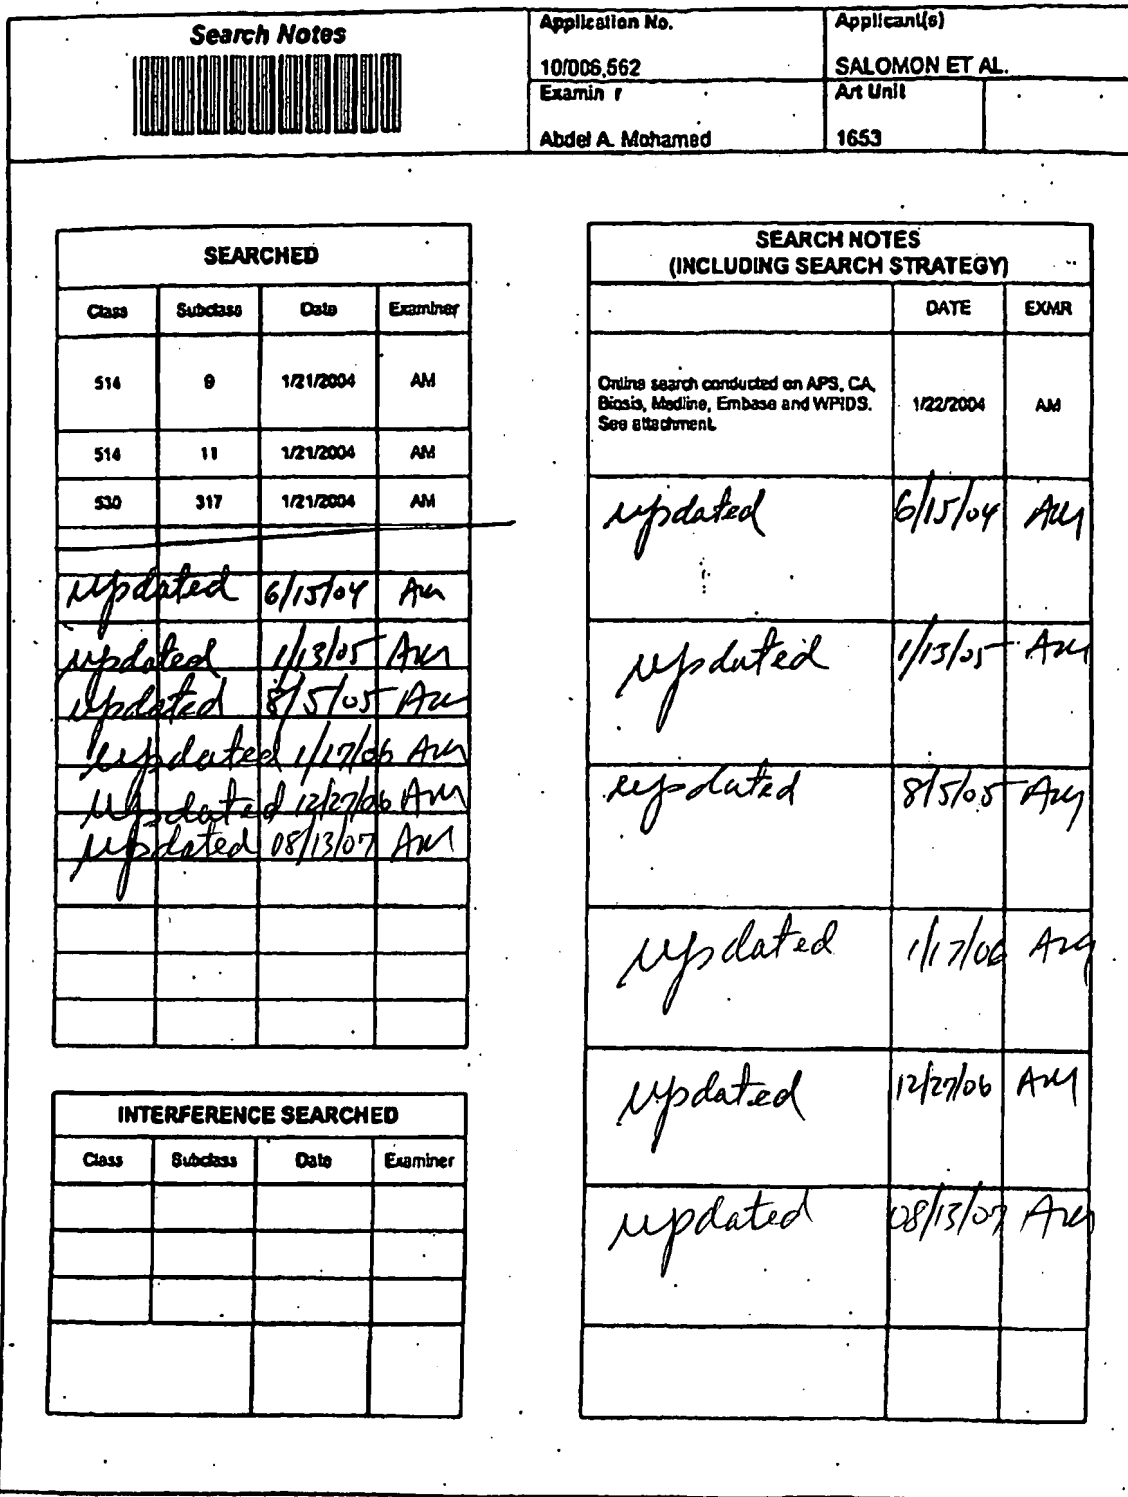 Search Notes
Application No.
10/006,562
Applicant(s)
SALOMON ET AL.
Examin r
Abdel A. Mohamed
Art Unit
1653
SEARCHED
Class Subclass Date Examiner
514 9 1/21/2004 AM
514 11 1/21/2004 AM
530 317 1/21/2004 AM
updated 6/15/04 AM
updated 1/13/05 AM
updated 8/5/05 AM
updated 1/17/06 AM
updated 12/27/06 AM
updated 08/13/07 AM
INTERFERENCE SEARCHED
Class Subclass Date Examiner
SEARCH NOTES
(INCLUDING SEARCH STRATEGY)
DATE EXMR
Online search conducted on APS, CA,
Biosis, Medline, Embase and WPIDS. 1/22/2004 AM
See attachment.
updated 6/15/04 AM
updated 1/13/05 AM
updated 8/5/05 AM
updated 1/17/06 AM
updated 12/27/06 AM
updated 08/13/07 AM